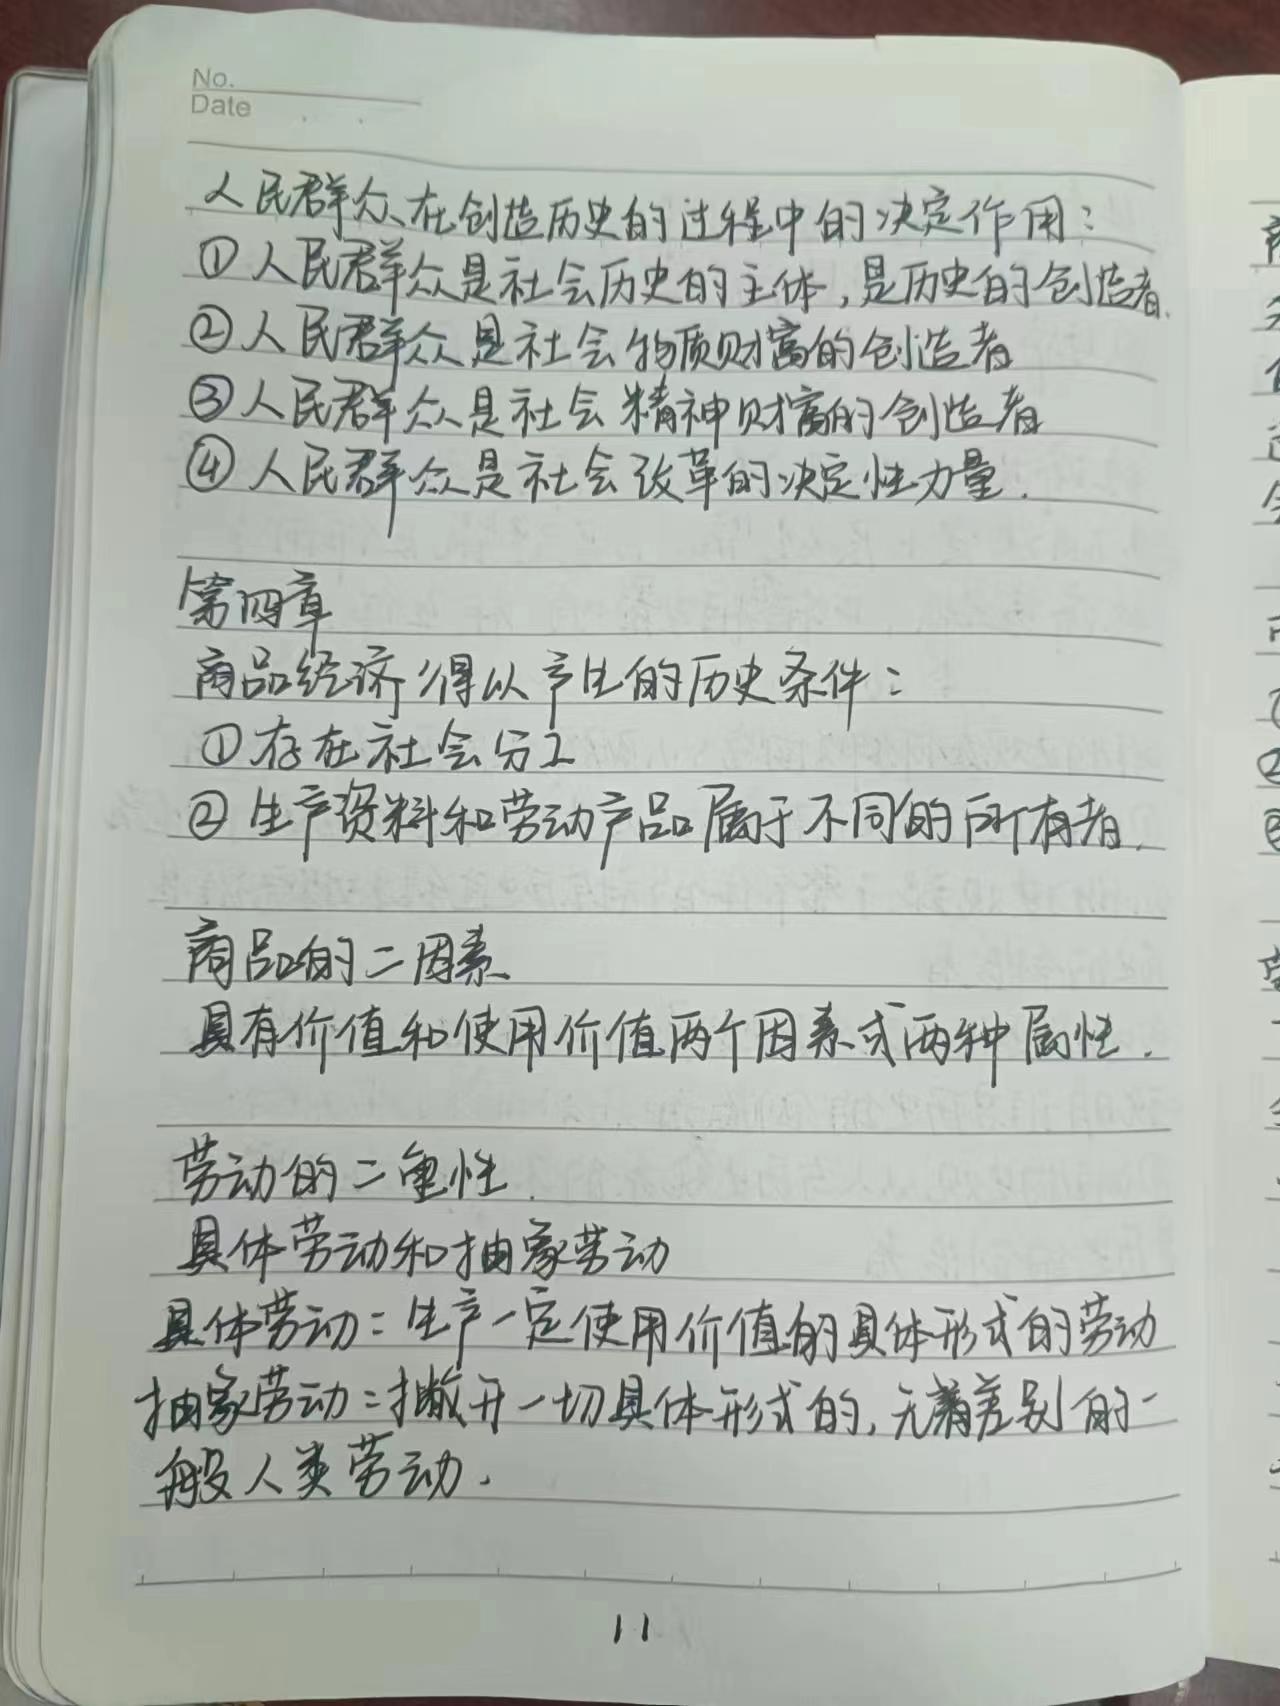 No.
Date
人民群众在创造历史的过程中的决定作用：
①人民群众是社会历史的主体，是历史的创造者.
②人民群众是社会物质财富的创造者
③人民群众是社会精神财富的创造者
④人民群众是社会改革的决定性力量.
第四章
商品经济得以产生的历史条件：
①存在社会分工
②生产资料和劳动产品属于不同的所有者.
商品的二因素
具有价值和使用价值两个因素或两种属性.
劳动的二重性.
具体劳动和抽象劳动
具体劳动：生产一定使用价值的具体形式的劳动
抽象劳动：撇开一切具体形式的,无差别的一
般人类劳动.
11